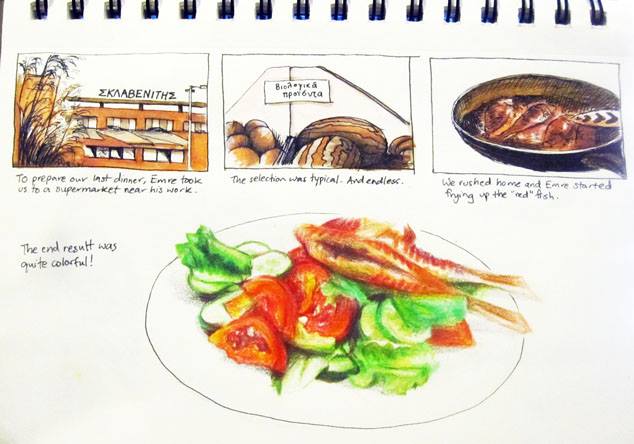 ΣΚΛΑΒΕΝΙΤΗΣ
Βιολογικά
προϊόντα
To prepare our last dinner, Emre took
us to a supermarket near his work.
The selection was typical. And endless.
We rushed home and Emre started
frying up the "red" fish.
The end result was
quite colorful!